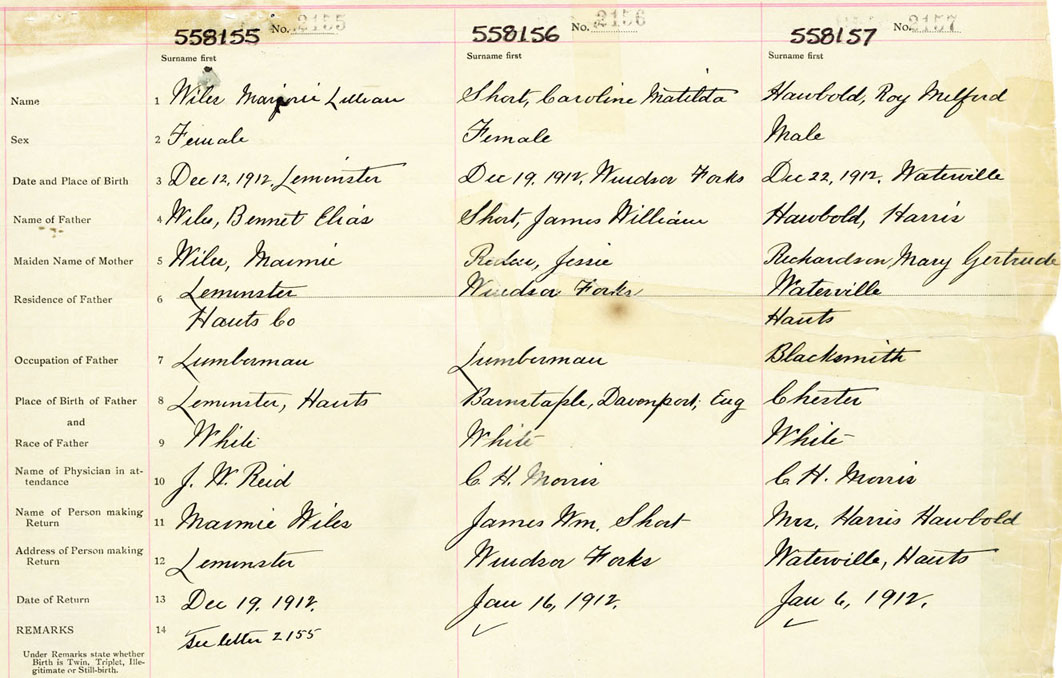 558155 No. 2155 558156 No. 2156 558157 No. 2157
Surname first Surname first Surname first
Name 1 Wiles Marjorie Lillian Short, Caroline Matilda Hawbold, Roy Milford
Sex 2 Female Female Male
Date and Place of Birth 3 Dec 12, 1912, Leminster Dec 19, 1912, Windsor Forks Dec 22, 1912, Waterville
Name of Father 4 Wiles, Bennet Elias Short, James William Hawbold, Harris
Maiden Name of Mother 5 Wiles, Maimie Jessie Richardson Mary Gertrude
Residence of Father 6 Leminster Windsor Forks Waterville
Hants Co Hants
Occupation of Father 7 Lumberman Lumberman Blacksmith
Place of Birth of Father 8 Leminster, Hants Barnstaple, Davenport, Eng Chester
and
Race of Father 9 White White White
Name of Physician in at-
tendance 10 J. W. Reid C H. Morris C H. Morris
Name of Person making
Return 11 Maimie Wiles James Wm, Short Mrs, Harris Hawbold
Address of Person making
Return 12 Leminster Windsor Forks Waterville, Hants
Date of Return 13 Dec 19, 1912. Jan 16, 1912. Jan 6, 1912.
REMARKS 14 See letter 2155
Under Remarks state whether
Birth is Twin, Triplet, Ille-
gitimate or Still-birth.